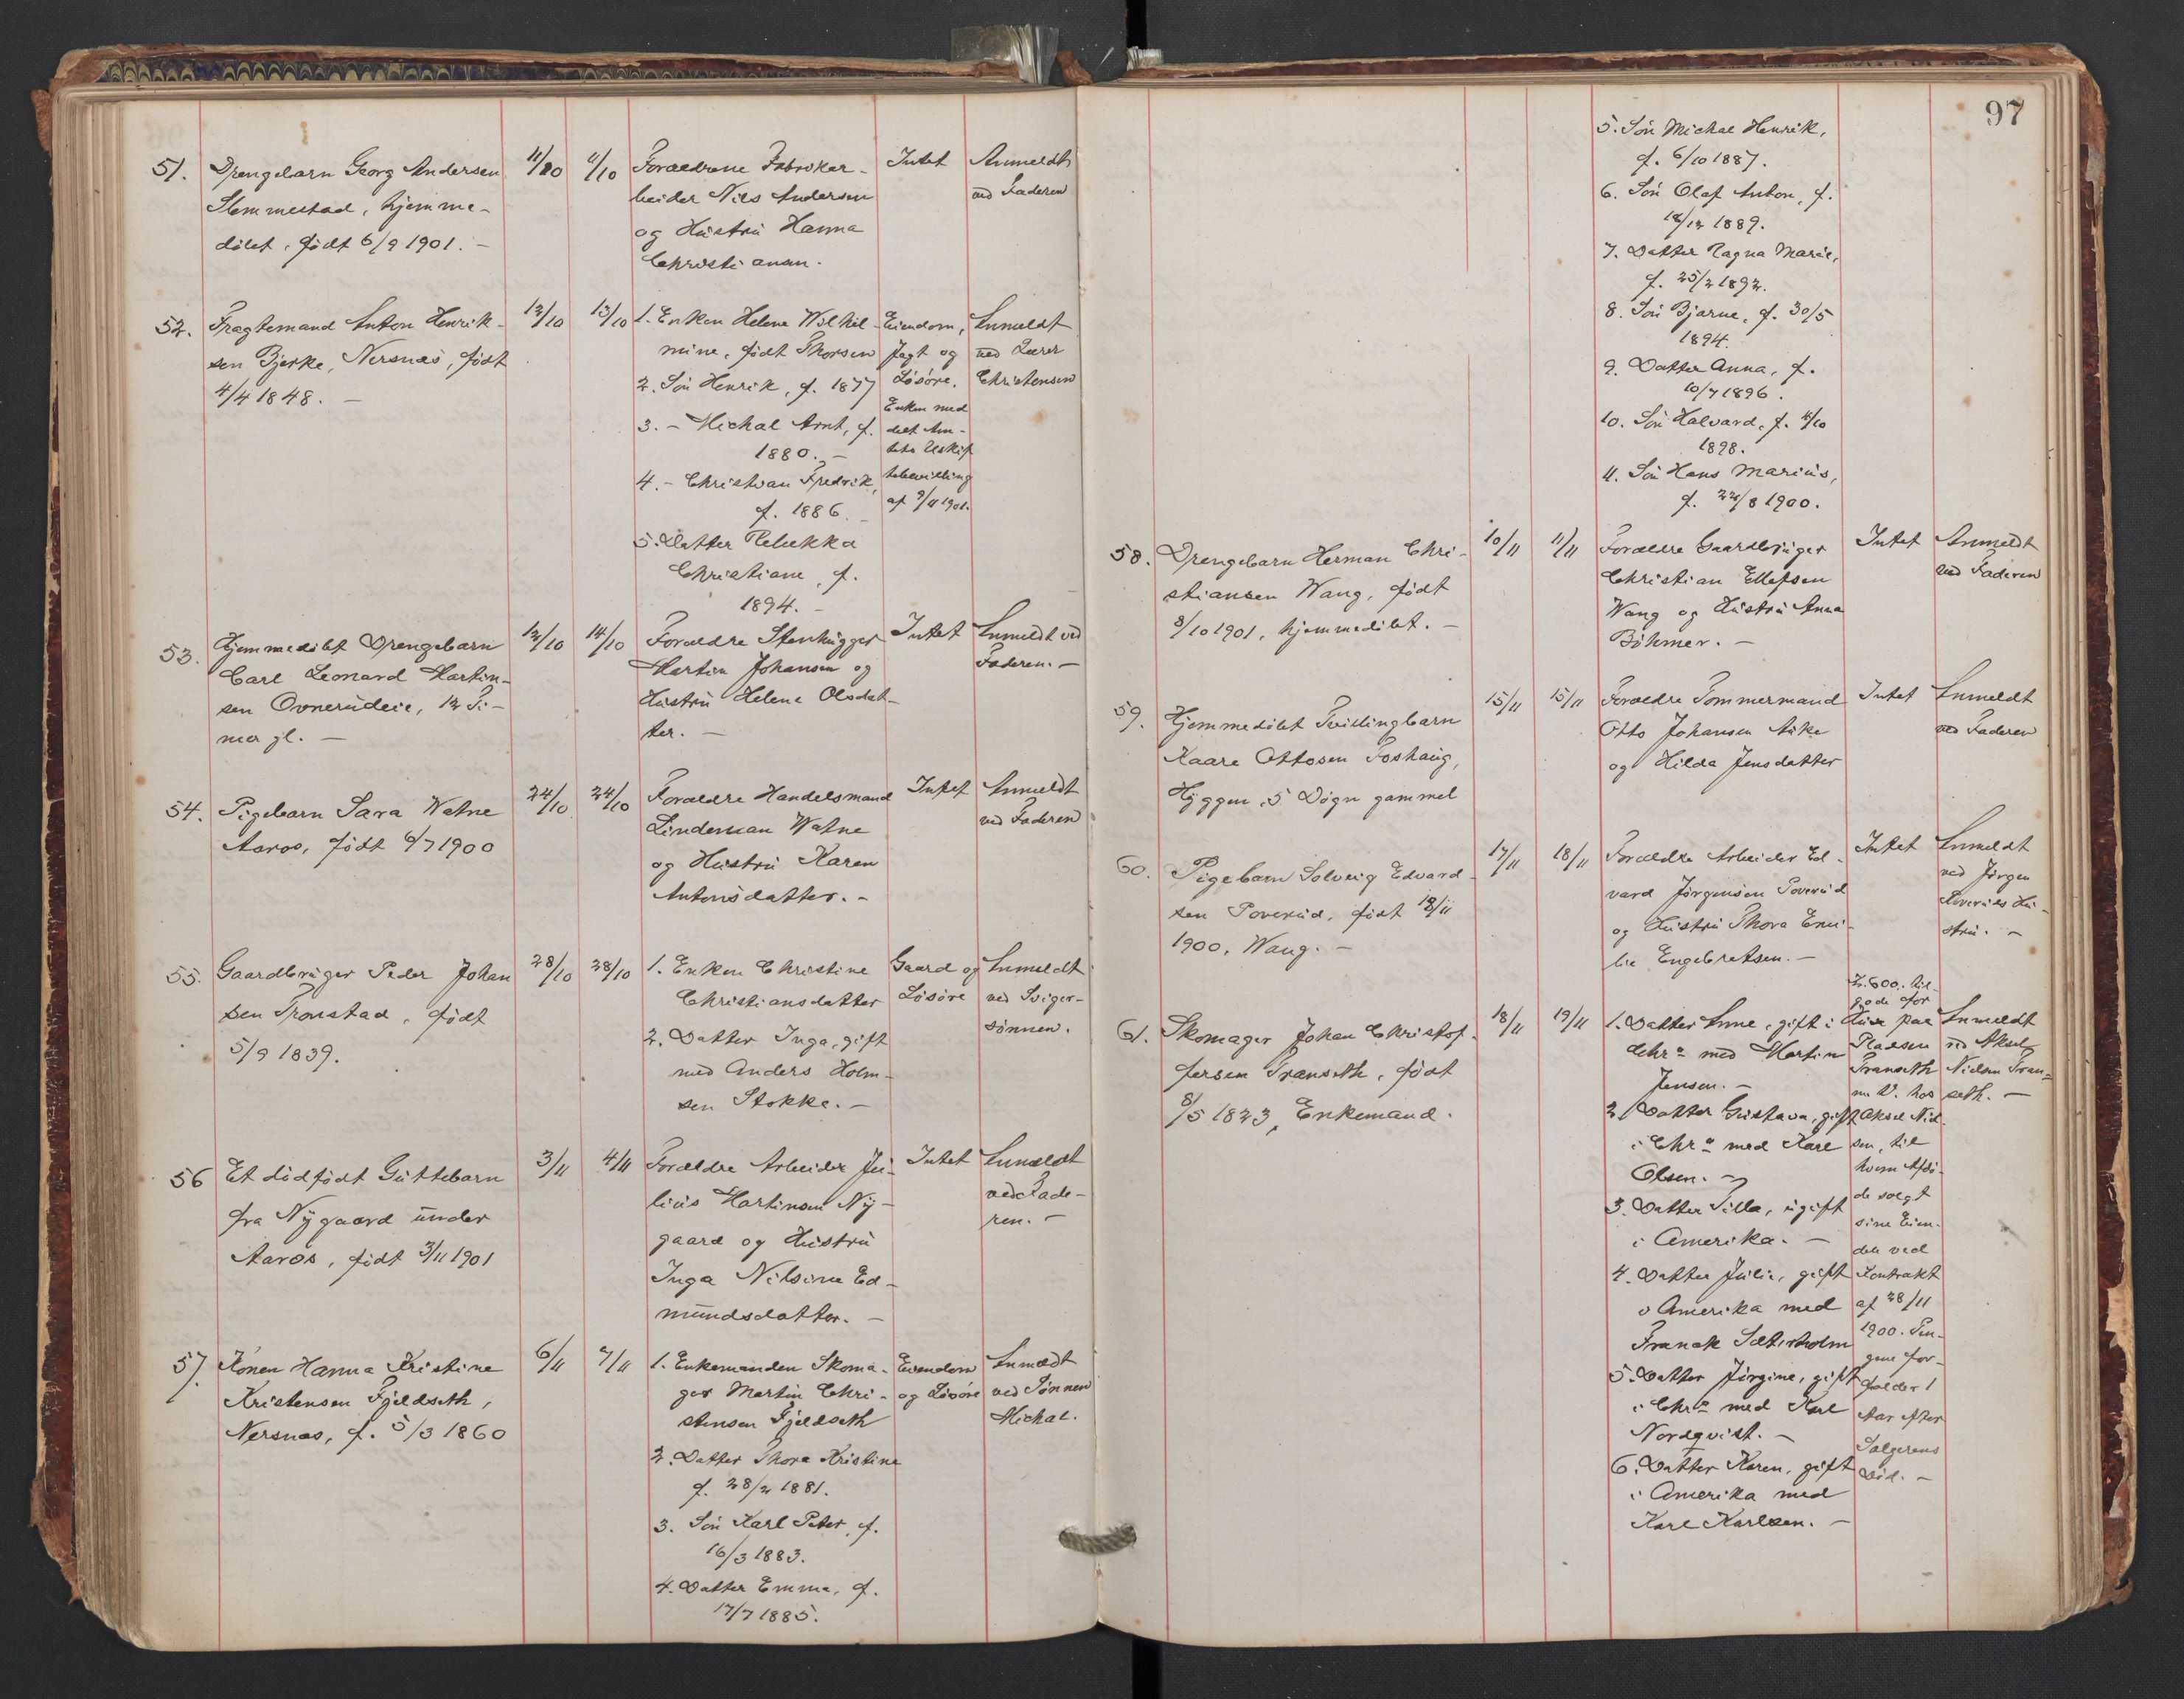 51.
Drengebarn Georg Andersen
Slemmestad, hjemme-
døbt, født 6/9 1901. -
11/10
11/10
Forældrene Fabrikar-
beider Nils Andersen
og Hüstrü Hanna
Christiansen.
Intet
Anmeldt
ved Faderen
52.
Fragtemand Anton Henrik-
sen Bjerke, Nersnæs, født
4/4 1848. -
12/10
13/10
1. Enken Helene Wilhel-
mine, født Thorsen
2. Søn Henrik, f. 1877
3. - Michal Arnt, f.
1880. -
4. - Christian Fredrik,
f. 1886. -
5. Datter Rebekka
Christiane, f.
1894. -
Eiendom,
Jagt og
Løsøre.
Enken med
delt Am-
tets Uskif
tebevilling
af 9/11 1901.
Anmeldt
ved Lærer
Christensen
53.
Hjemmedøbt Drengebarn
Carl Leonard Martin-
sen Ovnerüdeie, 12 Ti-
mer gl. -
12/10
14/10
Forældre Stenhügger
Martin Johansen og
Hüstrü Helene Olsdat-
ter. -
Intet
Anmeldt ved
Faderen. -
54.
Pigebarn Sara Watne
Aaros, født 6/7 1900
24/10
24/10
Forældre Handelsmand
Lindeman Watne
og Hüstrü Karen
Antonsdatter. -
Intet
Anmeldt
ved Faderen
55.
Gaardbrüger Peder Johan
sen Tronstad, født
5/9 1839.
28/10
28/10
1. Enken Christine
Christiansdatter
2. Datter Inga, gift
med Anders Holm-
sen Stokke. -
Gaard og
Løsøre
Anmeldt
ved Sviger-
sønnen.
56
Et dødfødt Güttebarn
fra Nygaard ünder
Aaros, født 3/11 1901
3/11
4/11
Forældre Arbeider Jü-
liüs Martinsen Ny-
gaard og Hüstrü
Inga Nilsine Ed-
mündsdatter. -
Intet
Anmeldt
ved Fade-
ren. -
57.
Konen Hanna Kristine
Kristensen Fjeldsæth,
Nersnæs, f. 5/3 1860
6/11
7/11
1. Enkemanden Skoma-
ger Martin Chri-
stensen Fjeldsæth
2. Datter Thora Kristine
f. 28/2 1881.
3. Søn Karl Peter, f.
16/3 1883.
4. Datter Emma, f.
17/7 1885.
Eiendom
og Løsøre
Anmeldt
ved Sønnen
Michal.
97
5. Søn Michal Henrik,
f. 6/10 1887.
6. Søn Olaf Anton, f.
18/12 1889.
7. Datter Ragna Marie,
f. 25/2 1892.
8. Søn Bjarne, f. 30/5
1894.
9. Datter Anna, f.
10/7 1896.
10. Søn Halvard, f.
1898.
11. Søn Hans Mariüs,
f. 22/8 1900.
58.
Drengebarn Herman Chri-
stiansen Wang, født
8/10 1901, hjemmedøbt. -
10/11
11/11
Forældre Gaardbrüger
Christian Ellefsen
Wang og Hüstrü Anna
Böhmer. -
Intet
Anmeldt
ved Faderen
59.
Hjemmedøbt Tvillingbarn
Kaare Ottosen Foshaüg,
Hyggen, 5 Døgn gammel
15/11
15/11
Forældre Tømmermand
Otto Johansen Aüke
og Hilda Jensdatter
Intet
Anmeldt
ved Faderen
60.
Pigebarn Solveig Edvard-
sen Poverüd, født 18/11
1900, Wang. -
17/11
18/11
Forældre Arbeider Ed-
vard Jørgensen Poverüd
og Hüstrü Thora Emi-
lie Engebretsen. -
Intet
Anmeldt
ved Jørgen
Poverüds Hü-
strü. -
61.
Skomager Johan Christof-
fersen Transeth, født
8/5 1823, Enkemand.
18/11
19/11
1. Datter Anne, gift i
Chra med Martin
Jensen. -
2. Datter Güstava, gift
i Chra med Karl
Olsen. -
3. Datter Tilla, ügift
i Amerika. -
4. Datter Jülie, gift
i Amerika med
Franak Sæterholm
5. Datter Jørgine, gift
i Chra med Karl
Nordqvist. -
6. Datter Karen, gift
i Amerika med
Karl Karlsen. -
Kr. 600. til-
gode for
Hüse paa
Pladsen
Transeth
m. V. hos
Aksel Niel-
sen, til
hvem Afdø-
de solgt
sine Eien-
dele ved
Kontrakt
af 28/11
1900. Pen-
gene for-
falder 1
Aar efter
Sælgerens
Død. -
Anmeldt
ved Aksel
Nielsen Tran-
seth. -